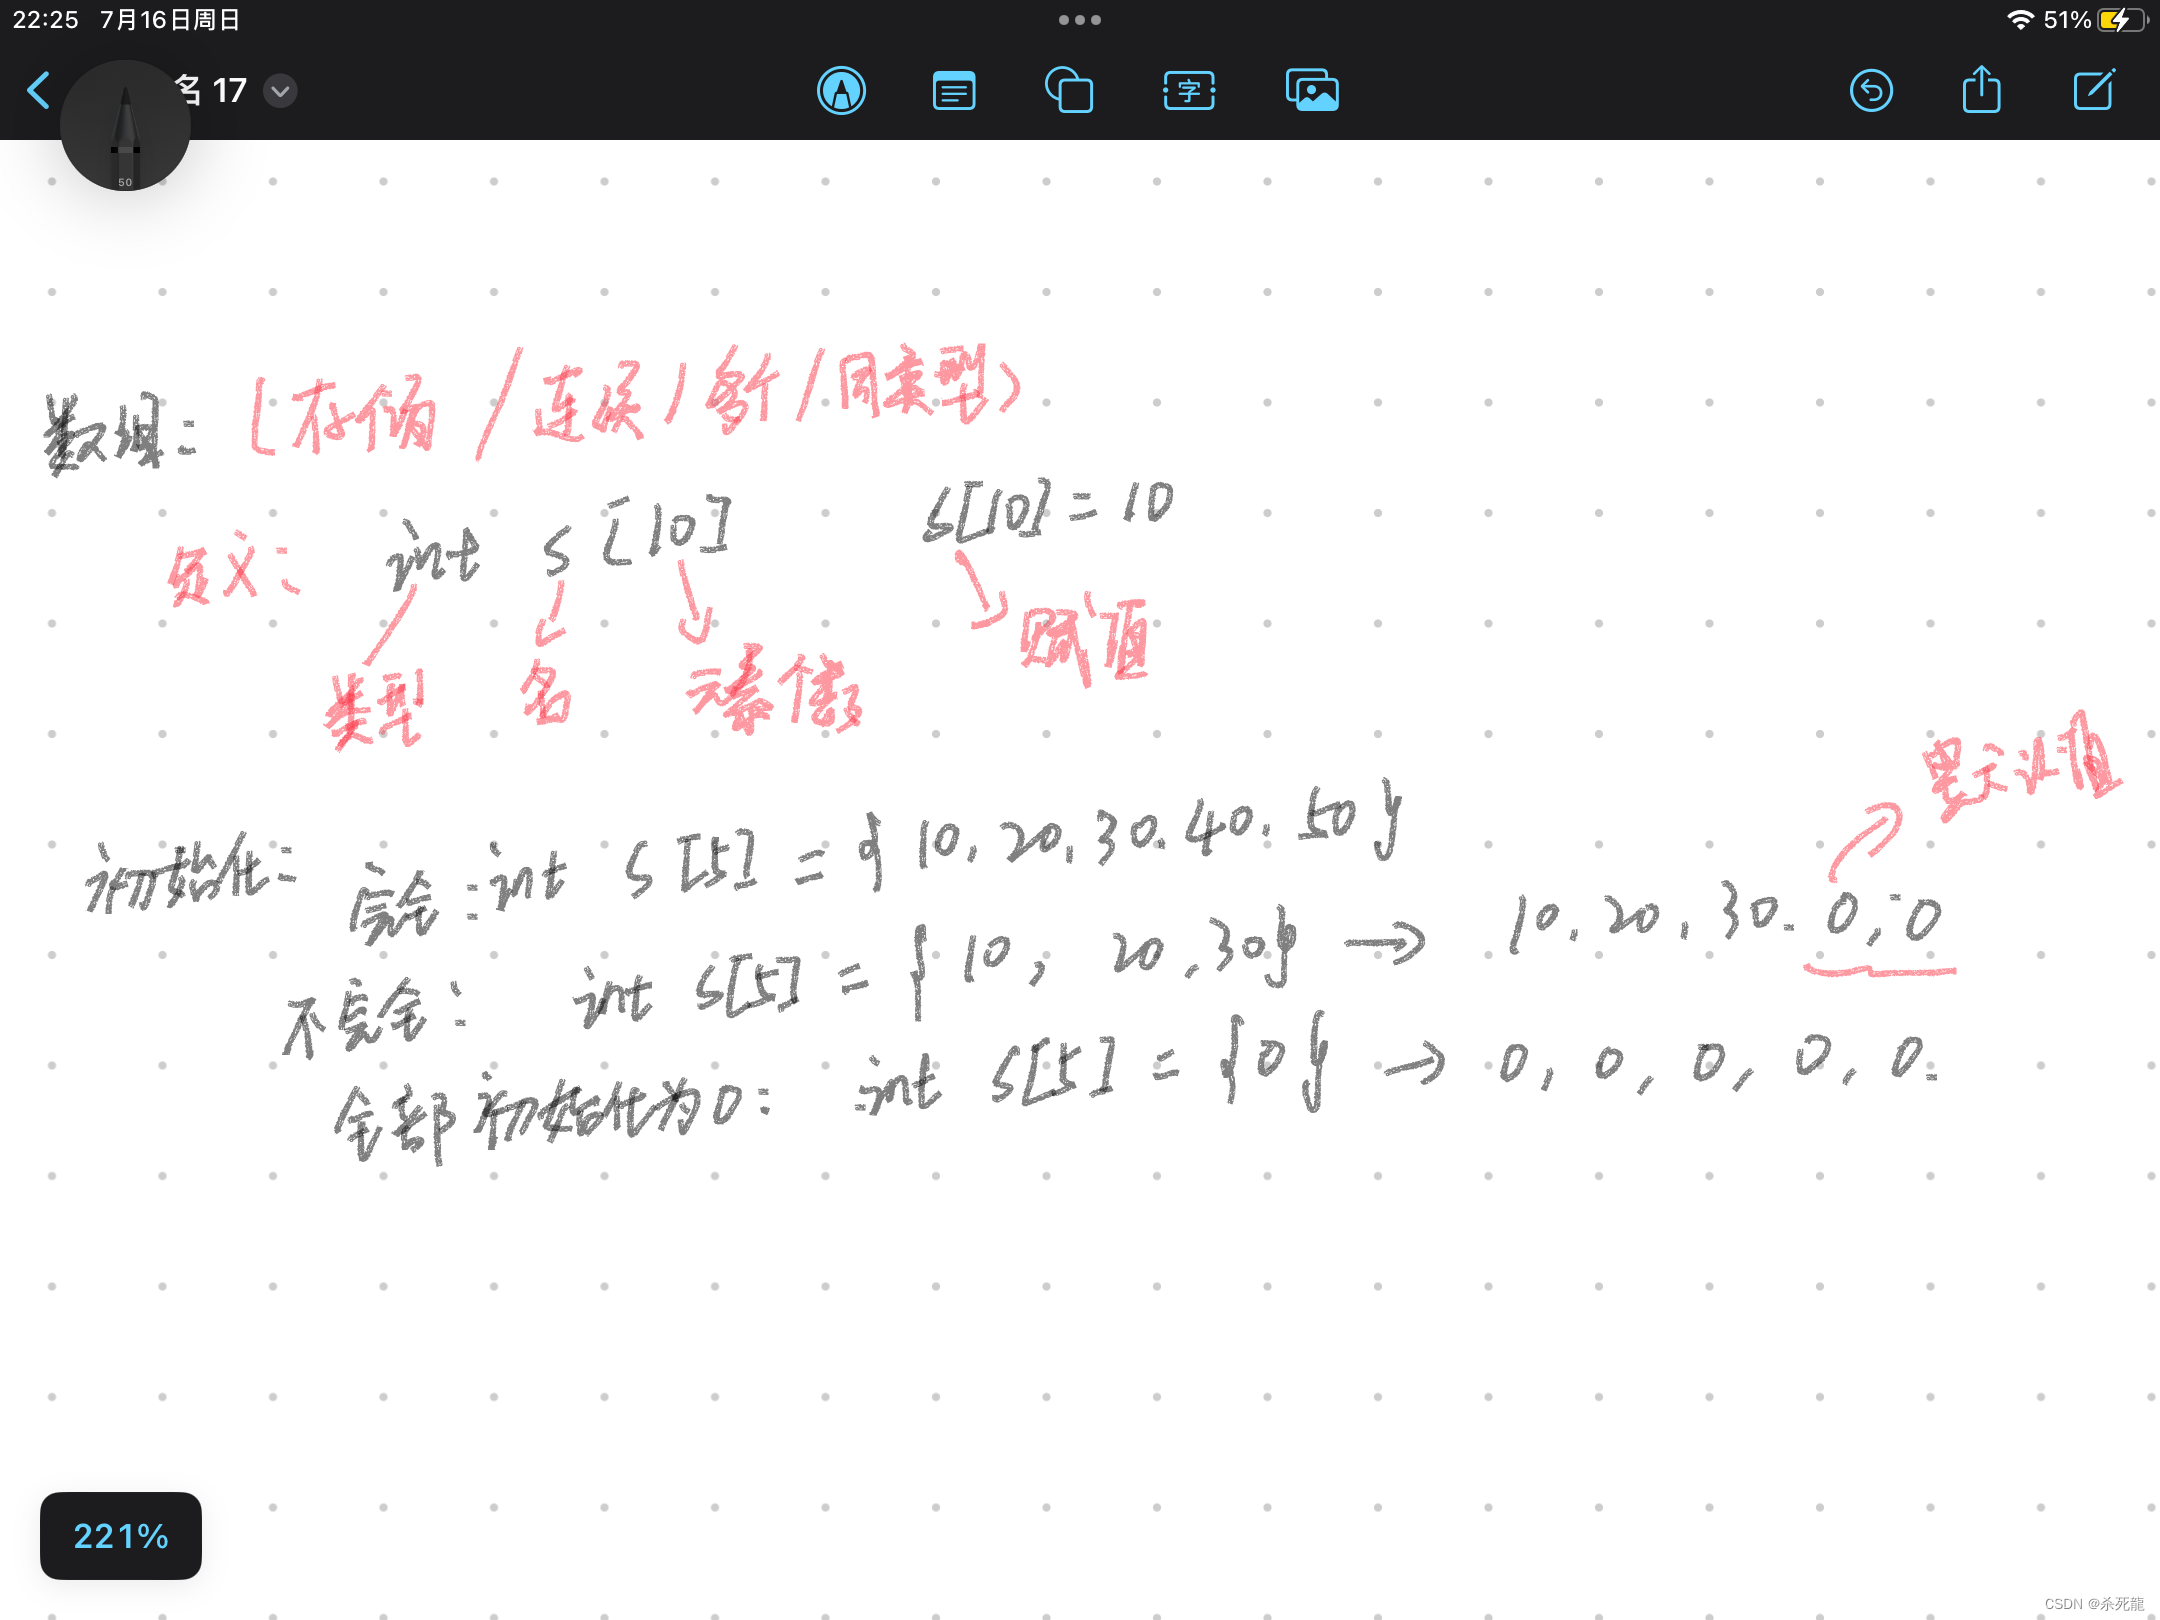 22:25 7月16日周日
51%
名 17
字
50
数组: (存储/连续/多个/同类型)
定义: int s[10] s[10]=10
类型 名 元素個数 赋值
默认值
初始化: 完全:int s[5] = {10.20.30.40.50}
不完全: int s[5] = {10, 20,30} → 10.20.30.0,0
全部初始化为0: int s[5] = {0} → 0,0,0,0,0.
221%
CSDN @杀死龍